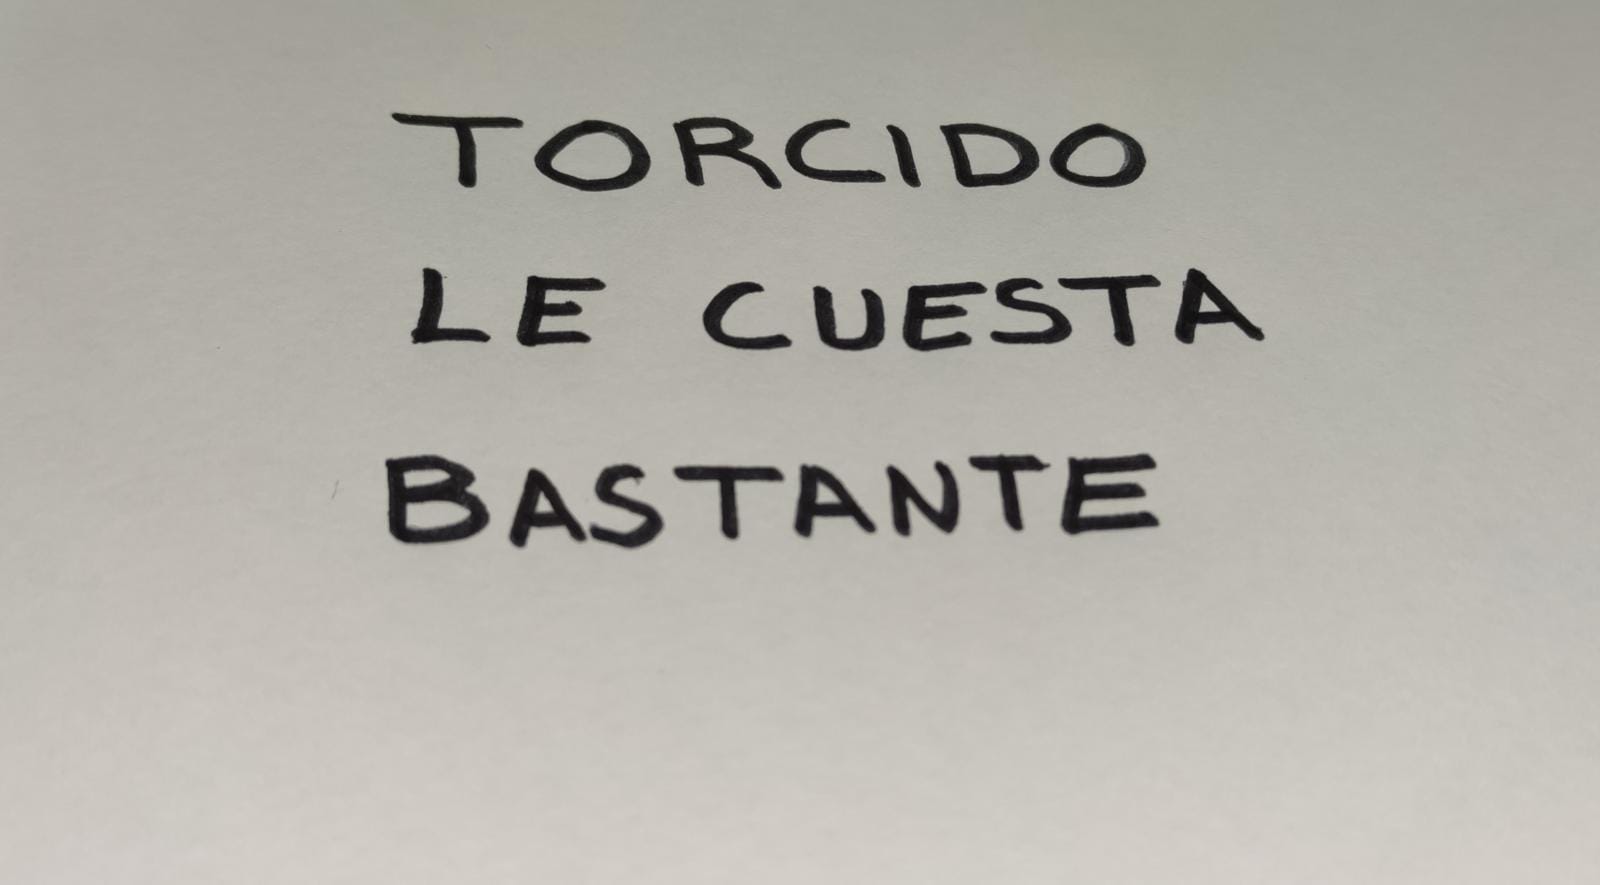 TORCIDO
LE CUESTA
BASTANTE